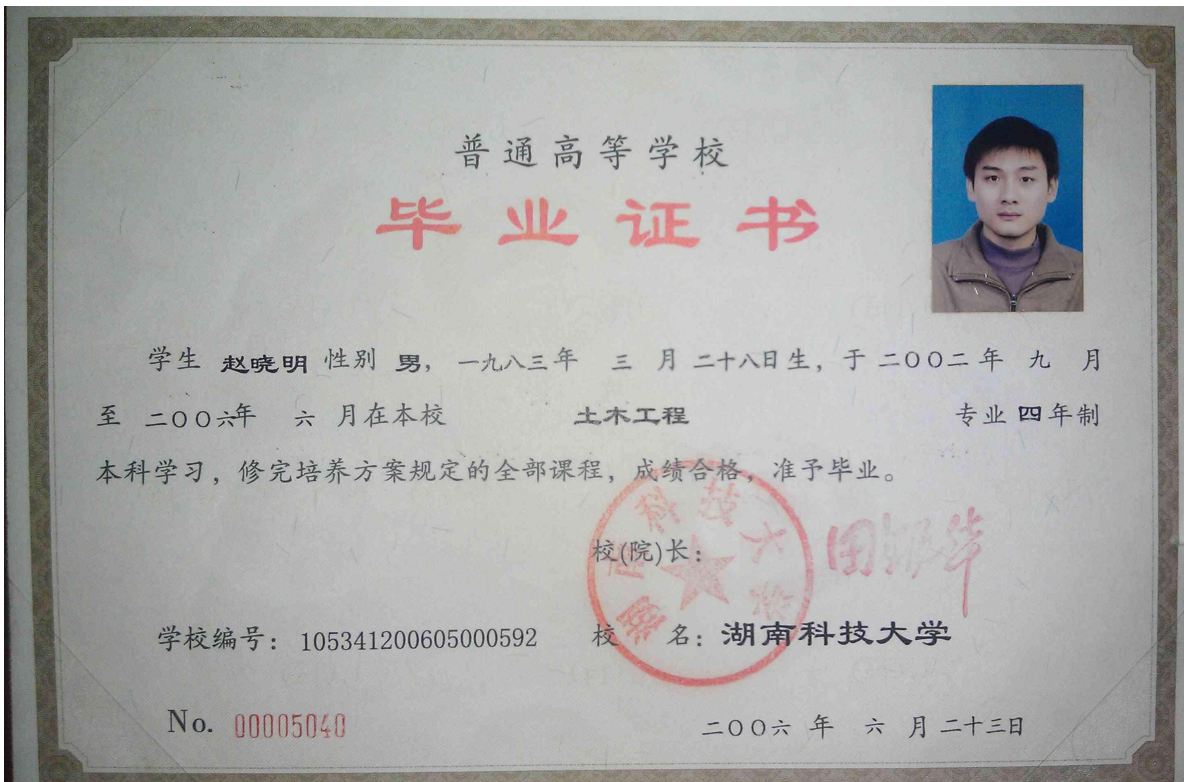 普通高等学校
毕业证书
学生 赵晓明 性别 男, 一九八三年 三 月 二十八日生, 于 二〇〇二 年 九 月
至 二〇〇六年 六 月在本校 土木工程 专业 四 年制
本科学习, 修完培养方案规定的全部课程, 成绩合格, 准予毕业。
湖南科技大学
校(院)长: 田银华
学校编号: 105341200605000592 校 名: 湖南科技大学
No. 00005040 二〇〇六 年 六 月 二十三日